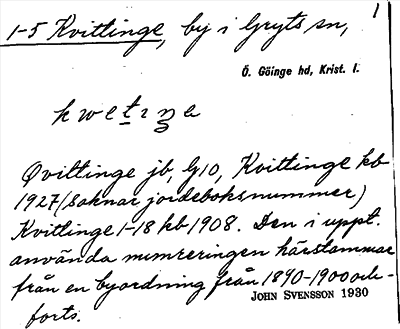 1
1-5 Kvittinge, by i Gryts sn,
Ö. Göinge hd, Krist. l.
kwetiŋa
Qvittinge jb, G10, Kvittinge kb
1927 (saknar jordeboksnummer)
Kvittinge 1-18 kb 1908. Den i uppt.
använda numreringen härstammar
från en byordning från 1890-1900 och-
forts.
JOHN SVENSSON 1930